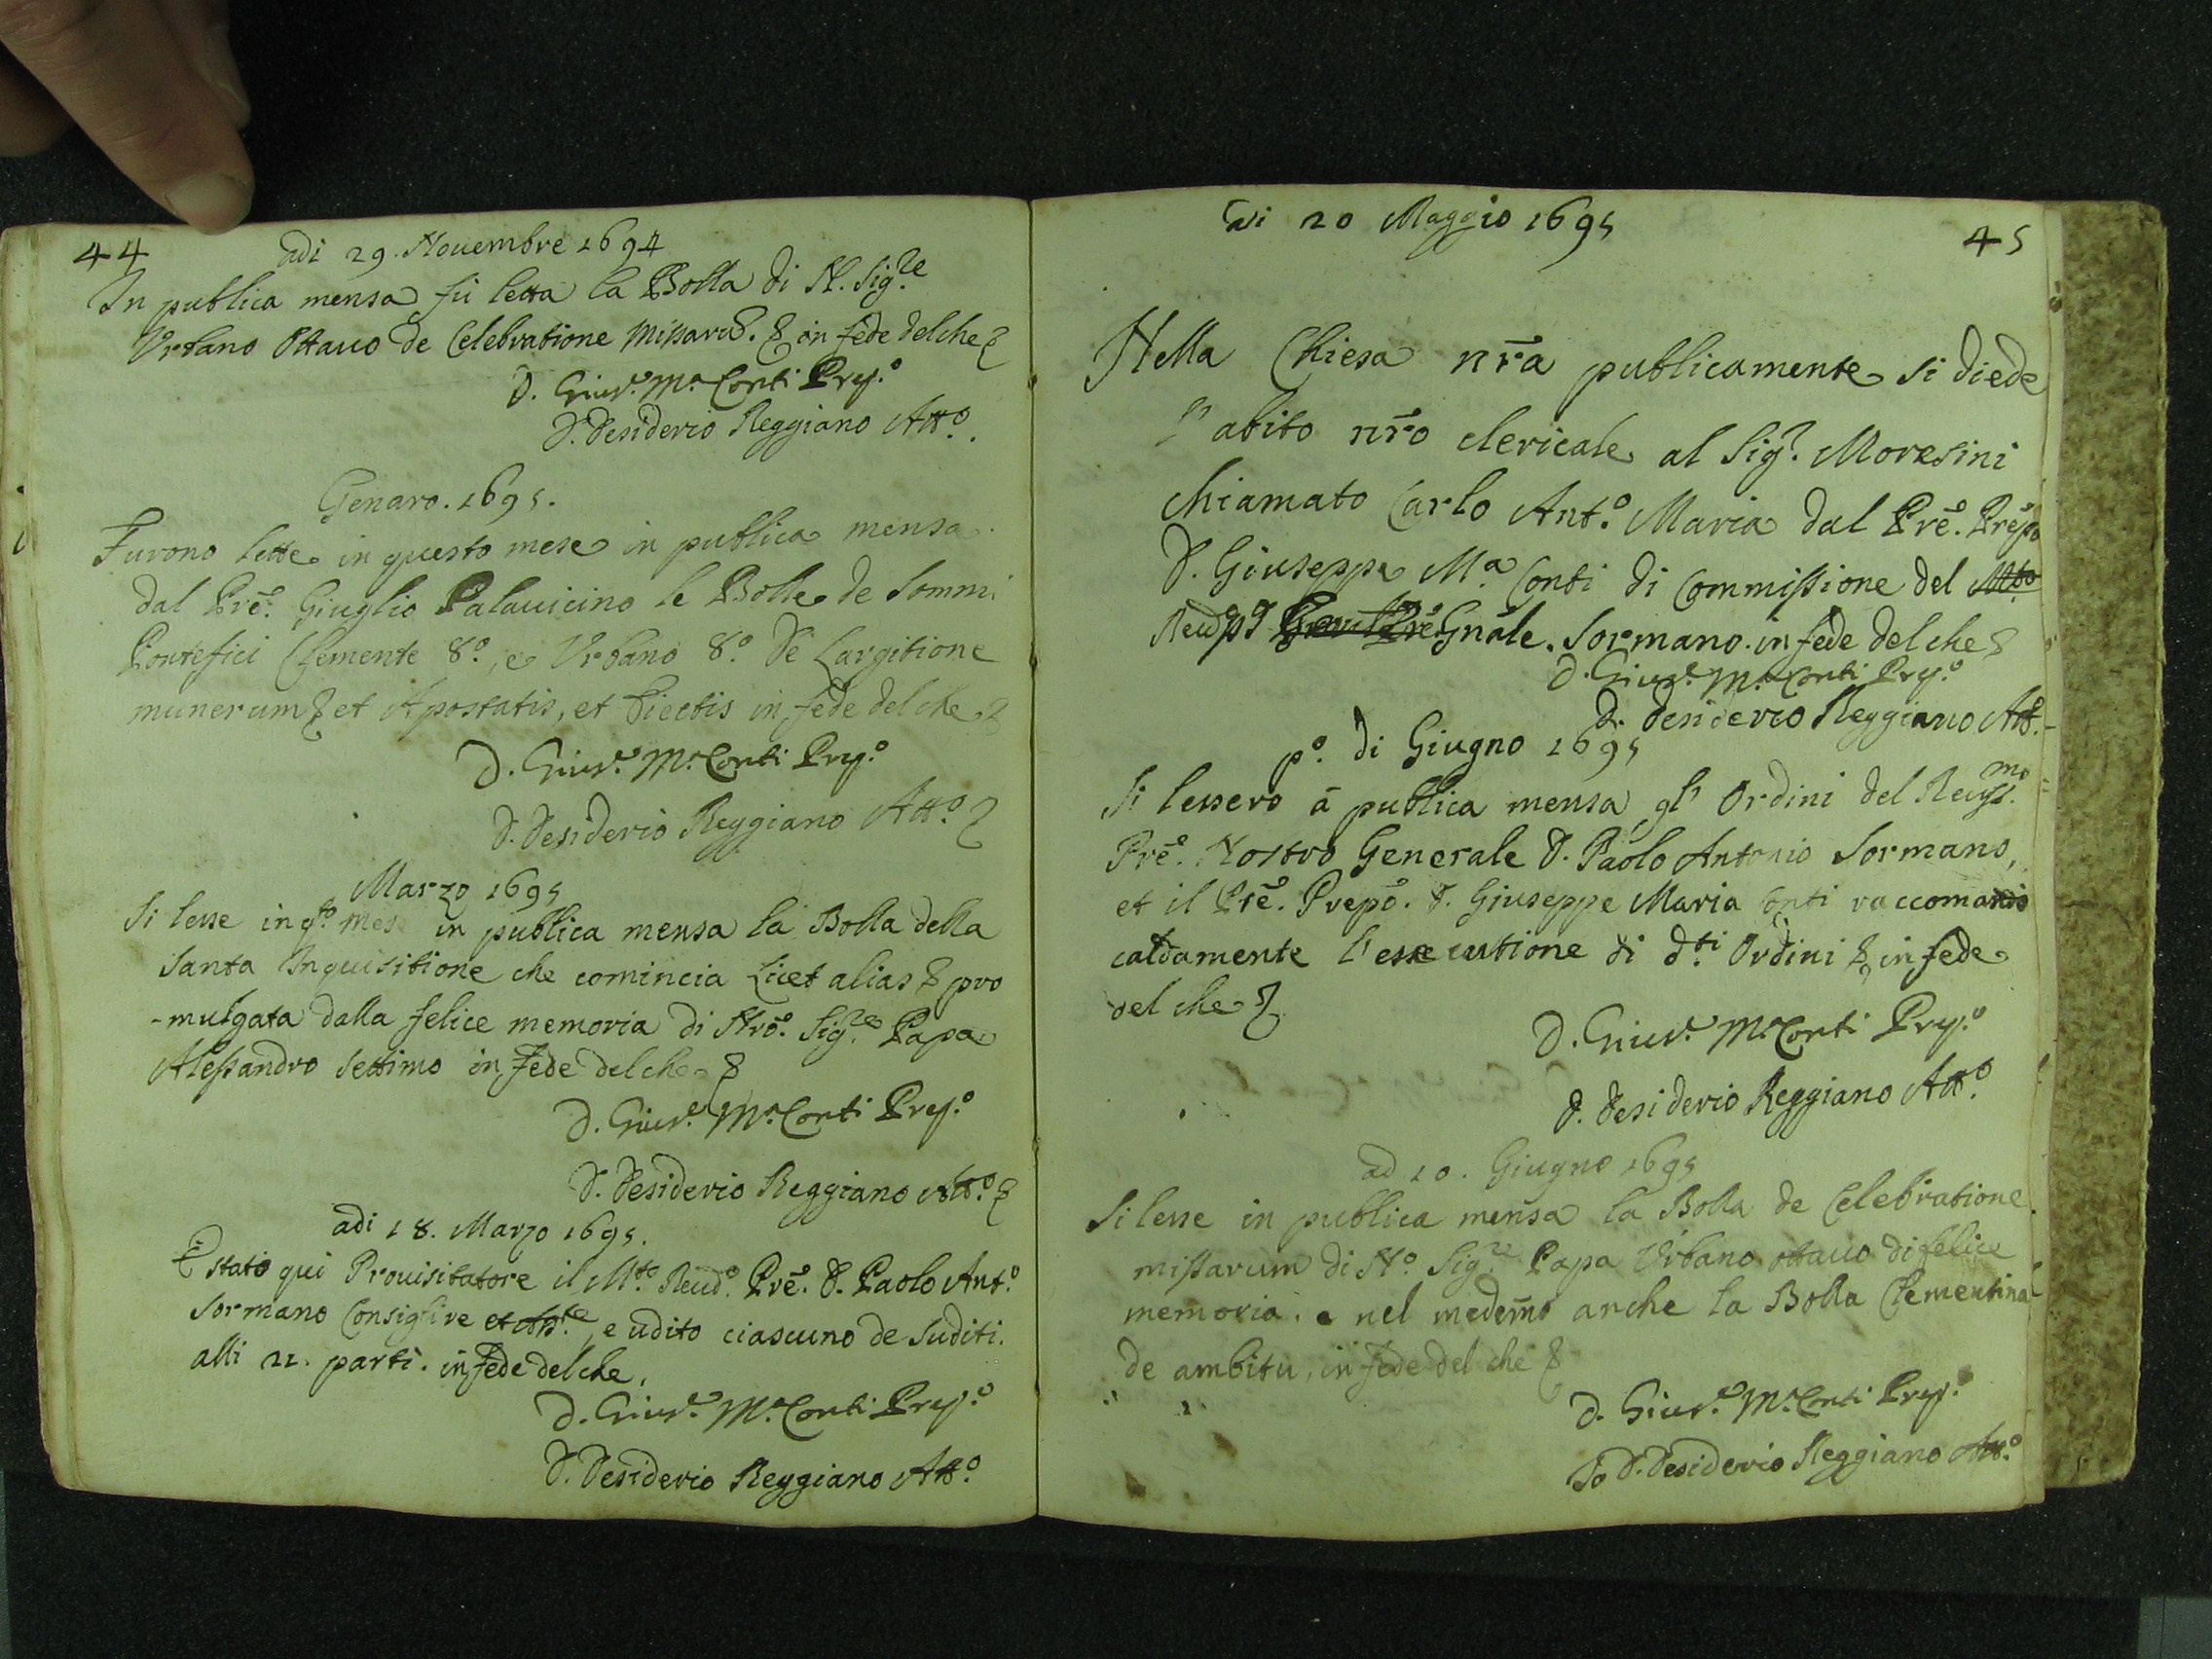 44
adi 29. Nouembre 1694
In publica mensa fù letta la Bolla di N. Sig.re
Vrbano Ottauo de Celebratione Missarū. & in fede del che &
D. Gius.e M.a Conti Prep.o
D. Desiderio Reggiano Att.o.
Genaro. 1695.
Furono lette in questo mese in publica mensa
dal Prē. Giuglio Palauicino le Bolle de Sommi
Pontefici Clemente 8.o, e Vrbano 8.o De Largitione
munerum & et Apostatis, et Eiectis in fede del che &
D. Gius.e M.a Conti Prep.o
D. Desiderio Reggiano Att.o &
Marzo 1695
Si lesse in q.to mese in publica mensa la Bolla della
Santa Inquisitione che comincia Licet alias & pro
-mulgata dalla felice memoria di Nrō. Sig.re Papa
Alessandro settimo in fede del che &
D. Gius.e M.a Conti Prep.o
D. Desiderio Reggiano Att.o &
adi 18. Marzo 1695.
È stato qui Prouisitatore il M.to Reud.o Prē. D. Paolo Ant.o
Sormano Consiglire et, e udito ciascuno de Suditi.
alli 21. partì. in fede del che,
D. Gius.e M.a Conti Prep.o
D. Desiderio Reggiano Att.o
adi 20 Maggio 1695
45
Nella Chiesa nrā publicamente si diede
l'abito nrō clericale al Sig.r Moresini
chiamato Carlo Ant.o Maria dal Prē. Prepō
D. Giuseppe M.a Conti di Commissione del M.to
Reud. P Gnāle. Sormano. in fede del che &
D. Gius.e M.a Conti Prep.o
D. Desiderio Reggiano Att.
p.o di Giugno 1695
Si lessero à publica mensa gl' Ordini del Reuss.mo
Prē. Nostro Generale D. Paolo Antonio Sormano,
et il Prē. Prepō. D. Giuseppe Maria Conti raccomandò
caldamente l'essecutione di d.ti Ordini & in fede
del che &
D. Gius.e M.a Conti Prep.o
D. Desiderio Reggiano Att.o
ad 10. Giugno 1695
Si lesse in publica mensa la Bolla de Celebratione
missarum di N.o Sig.re Papa Vrbano ottauo di felice
memoria. e nel medemō anche la Bolla Clementina
de ambitu, in fede del che &
D. Gius.e M.a Conti Prep.o
Io D. Desiderio Reggiano Att.o